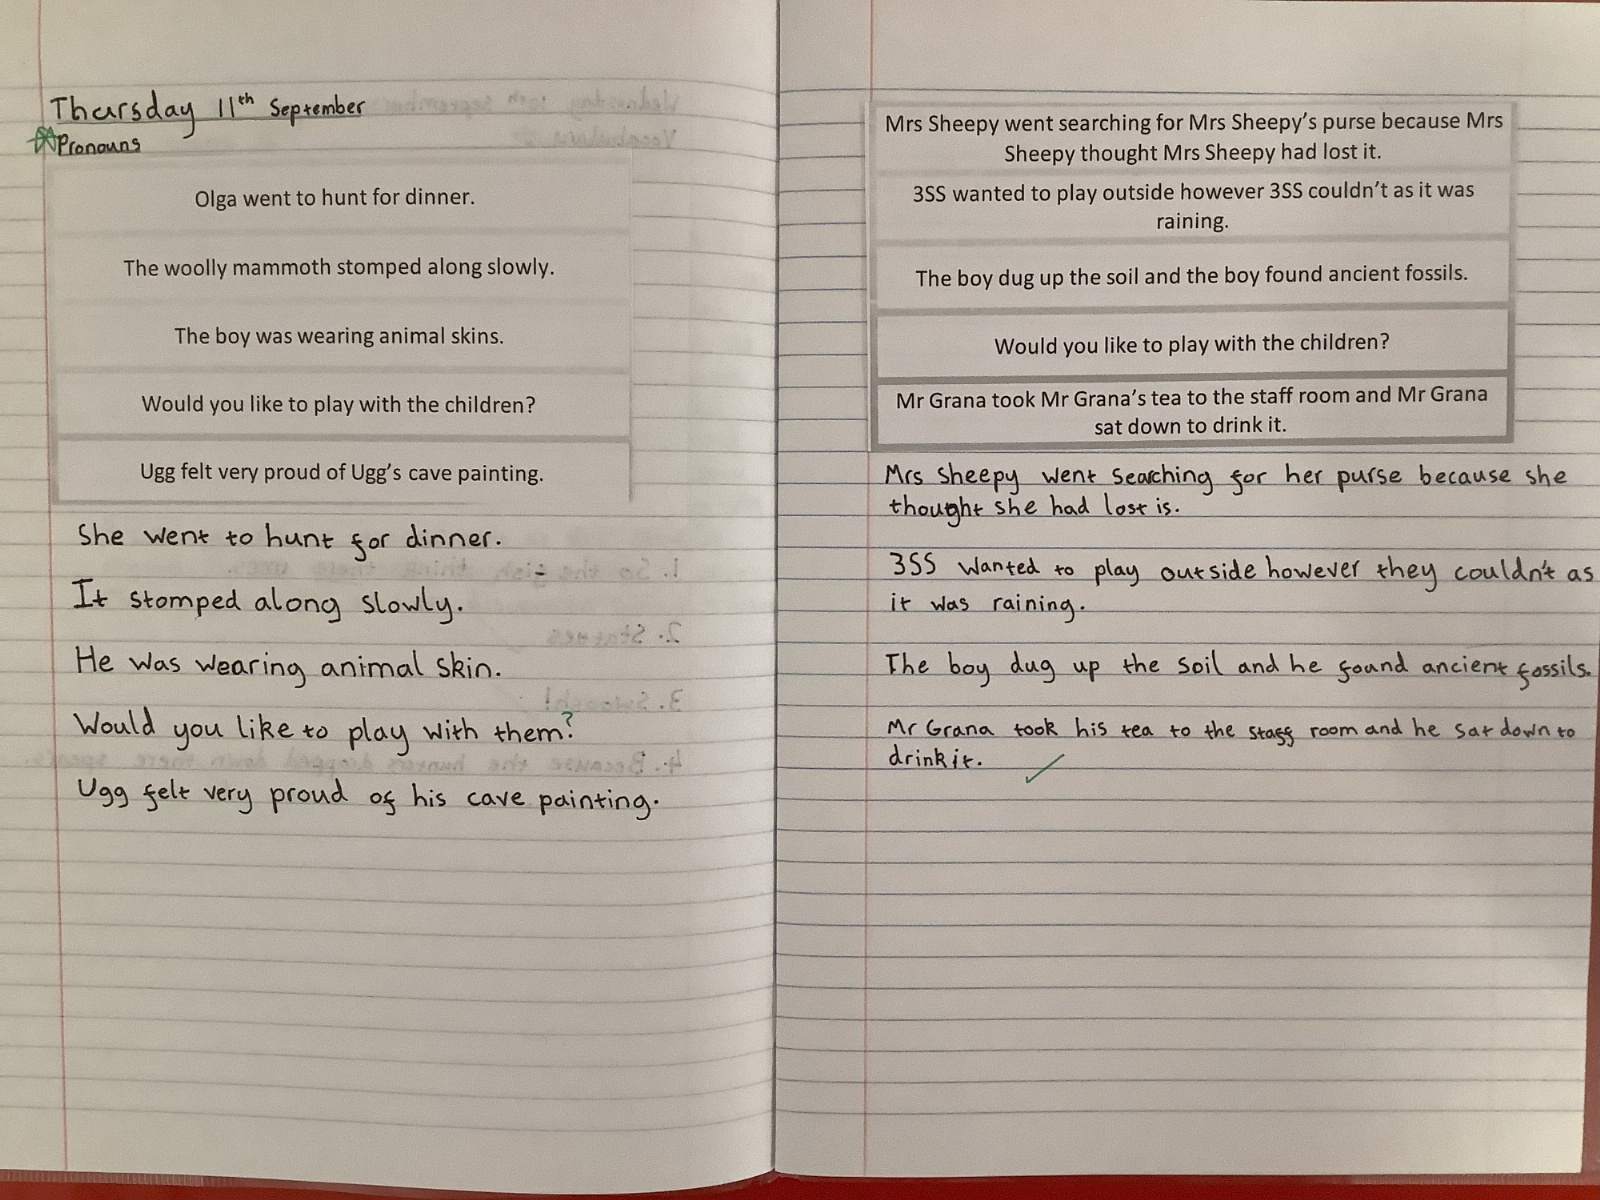 Thursday 11th September
Pronouns
Olga went to hunt for dinner.
The woolly mammoth stomped along slowly.
The boy was wearing animal skins.
Would you like to play with the children?
Ugg felt very proud of Ugg's cave painting.
She went to hunt for dinner.
It stomped along slowly.
He was wearing animal skin.
Would you like to play with them?
Ugg felt very proud of his cave painting.
Mrs Sheepy went searching for Mrs Sheepy's purse because Mrs
Sheepy thought Mrs Sheepy had lost it.
3SS wanted to play outside however 3SS couldn't as it was
raining.
The boy dug up the soil and the boy found ancient fossils.
Would you like to play with the children?
Mr Grana took Mr Grana's tea to the staff room and Mr Grana
sat down to drink it.
Mrs Sheepy went searching for her purse because she
thought she had lost is.
3SS wanted to play outside however they couldn't as
it was raining.
The boy dug up the soil and he found ancient fossils.
Mr Grana took his tea to the staff room and he sat down to
drink it.